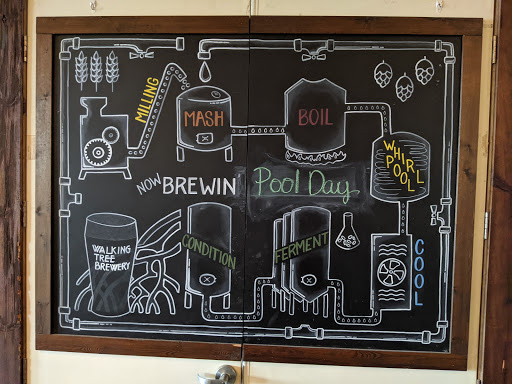 MILLING
MASH
BOIL
WHIRL
POOLL
NOW BREWIN
Pool Day
WALKING
TREE
BREWERY
CONDITION
FERMENT
COOL